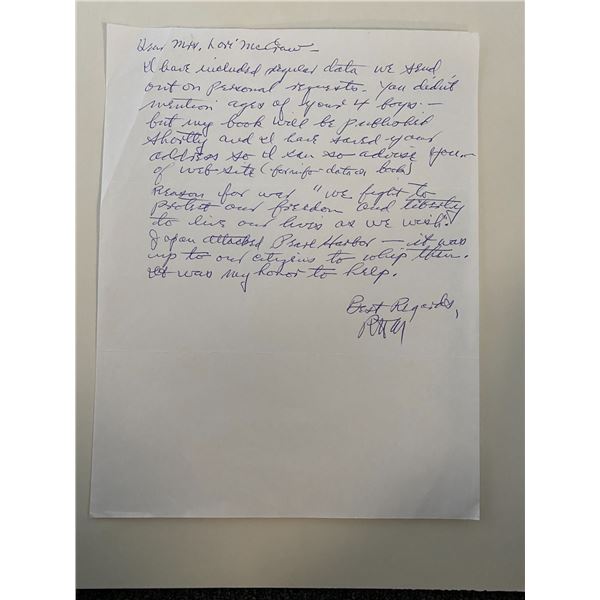 Dear Mrs. Lori McGraw -
I have included regular data we send
out on personal requests. You didn't
mention ages of your 4 boys -
but my book will be published
shortly and I have saved your
address so I can so advise your
of web-site (for info-data on book)
Reason for war "we fight to
protect our freedom and liberty
to live our lives as we wish."
Japan attacked Pearl Harbor — it was
up to our citizens to whip them.
It was my honor to help.
Best Regards,